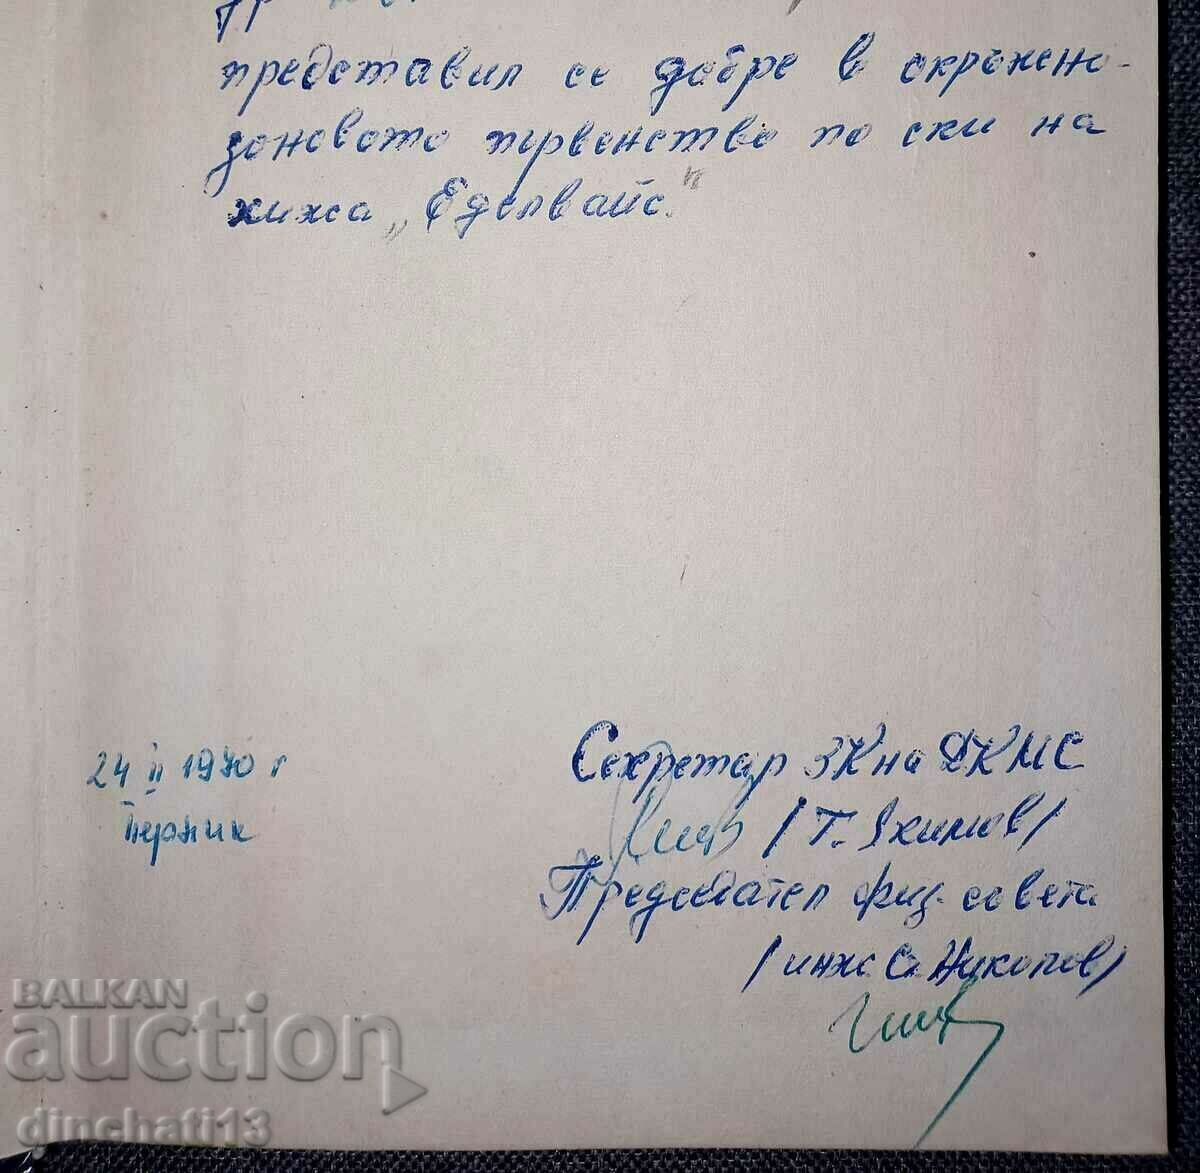 представил се добре в окръжно-
зоновото първенство по ски на
хижа „Еделвайс"
24 II 1970 г
Перник
Секретар ЗК на ДКМС
/Т. Якимов/
Председател физ. съвета
/инж С. Николов/
BALKAN
auction
dinchati13